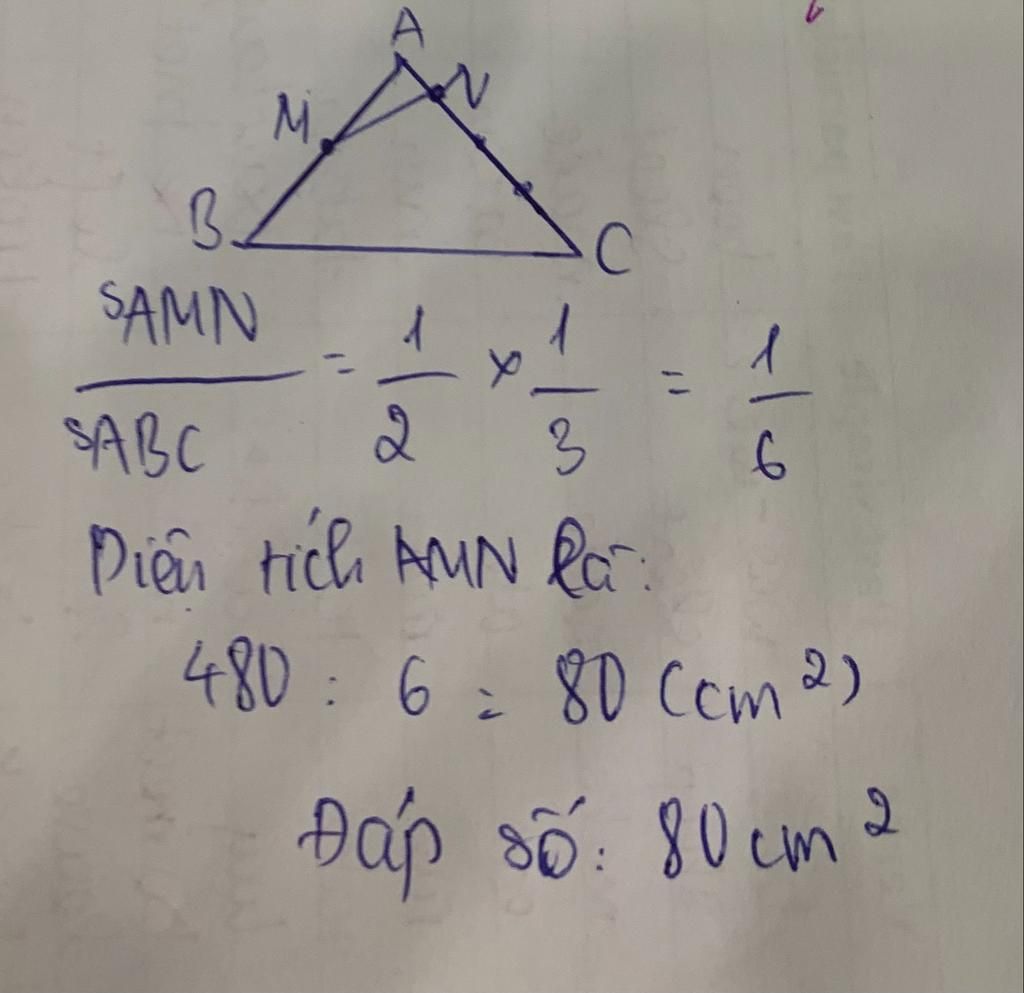 A
M N
B C
SAMN / SABC = 1/2 × 1/3 = 1/6
Diện tích AMN là:
480 : 6 = 80 (cm²)
Đáp số: 80 cm²